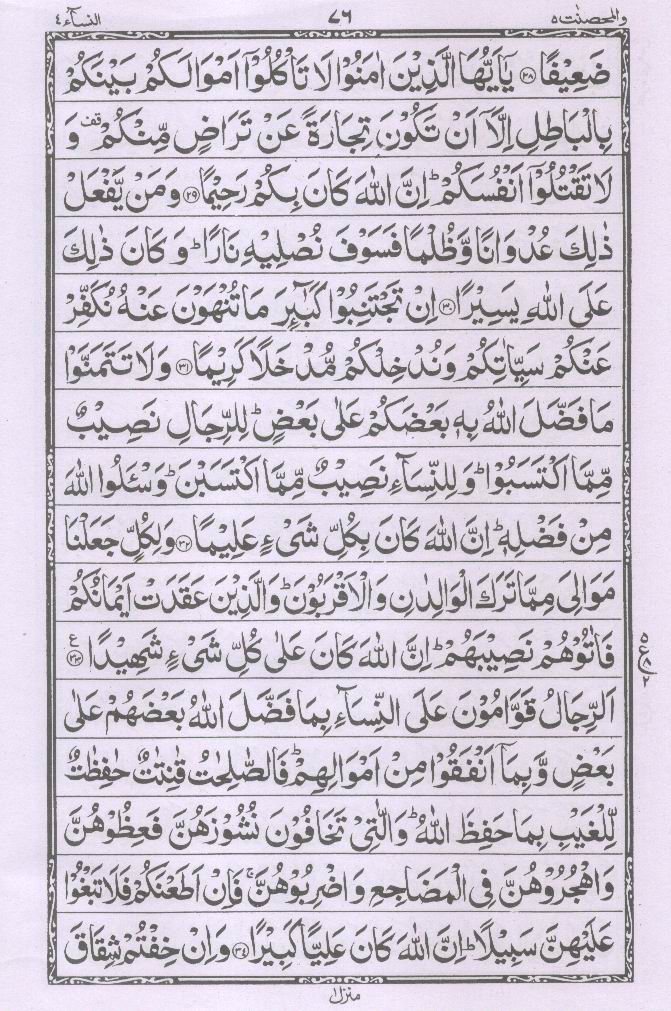 والمحصنٰت ٥ ٧٦ النسآء ٤
ضَعِیْفًا ﴿٢٨﴾ یٰۤاَیُّهَا الَّذِیْنَ اٰمَنُوْا لَا تَاْكُلُوْۤا اَمْوَالَكُمْ بَیْنَكُمْ
بِالْبَاطِلِ اِلَّاۤ اَنْ تَكُوْنَ تِجَارَةً عَنْ تَرَاضٍ مِّنْكُمْ ࣞ وَ
لَا تَقْتُلُوْۤا اَنْفُسَكُمْ ؕ اِنَّ اللّٰهَ كَانَ بِكُمْ رَحِیْمًا ﴿٢٩﴾ وَ مَنْ یَّفْعَلْ
ذٰلِكَ عُدْوَانًا وَّظُلْمًا فَسَوْفَ نُصْلِیْهِ نَارًا ؕ وَ كَانَ ذٰلِكَ
عَلَی اللّٰهِ یَسِیْرًا ﴿٣٠﴾ اِنْ تَجْتَنِبُوْا كَبَآئِرَ مَا تُنْهَوْنَ عَنْهُ نُكَفِّرْ
عَنْكُمْ سَیِّاٰتِكُمْ وَنُدْخِلْكُمْ مُّدْخَلًا كَرِیْمًا ﴿٣١﴾ وَلَا تَتَمَنَّوْا
مَا فَضَّلَ اللّٰهُ بِهٖ بَعْضَكُمْ عَلٰی بَعْضٍ ؕ لِلرِّجَالِ نَصِیْبٌ
مِّمَّا اكْتَسَبُوْا ؕ وَلِلنِّسَآءِ نَصِیْبٌ مِّمَّا اكْتَسَبْنَ ؕ وَسْئَلُوا اللّٰهَ
مِنْ فَضْلِهٖ ؕ اِنَّ اللّٰهَ كَانَ بِكُلِّ شَیْءٍ عَلِیْمًا ﴿٣٢﴾ وَلِكُلٍّ جَعَلْنَا
مَوَالِیَ مِمَّا تَرَكَ الْوَالِدٰنِ وَالْاَقْرَبُوْنَ ؕ وَالَّذِیْنَ عَقَدَتْ اَیْمَانُكُمْ
فَاٰتُوْهُمْ نَصِیْبَهُمْ ؕ اِنَّ اللّٰهَ كَانَ عَلٰی كُلِّ شَیْءٍ شَهِیْدًا ﴿٣٣﴾ ع
اَلرِّجَالُ قَوّٰمُوْنَ عَلَی النِّسَآءِ بِمَا فَضَّلَ اللّٰهُ بَعْضَهُمْ عَلٰی
بَعْضٍ وَّبِمَاۤ اَنْفَقُوْا مِنْ اَمْوَالِهِمْ ؕ فَالصّٰلِحٰتُ قٰنِتٰتٌ حٰفِظٰتٌ
لِّلْغَیْبِ بِمَا حَفِظَ اللّٰهُ ؕ وَالّٰتِیْ تَخَافُوْنَ نُشُوْزَهُنَّ فَعِظُوْهُنَّ
وَاهْجُرُوْهُنَّ فِی الْمَضَاجِعِ وَاضْرِبُوْهُنَّ ۚ فَاِنْ اَطَعْنَكُمْ فَلَا تَبْغُوْا
عَلَیْهِنَّ سَبِیْلًا ؕ اِنَّ اللّٰهَ كَانَ عَلِیًّا كَبِیْرًا ﴿٣٤﴾ وَاِنْ خِفْتُمْ شِقَاقَ
منزل ١